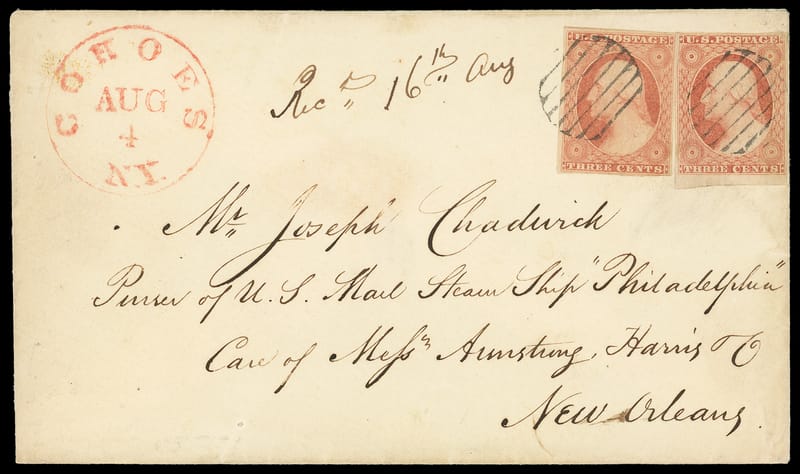 COHOES
AUG
4
N.Y.
Rec^d 16th Aug
U.S. POSTAGE
THREE CENTS
U.S. POSTAGE
THREE CENTS
Mr Joseph Chadwick
Purser of U.S. Mail Steam Ship "Philadelphia"
Care of Mess^rs Armstrong, Harris & Co
New Orleans.